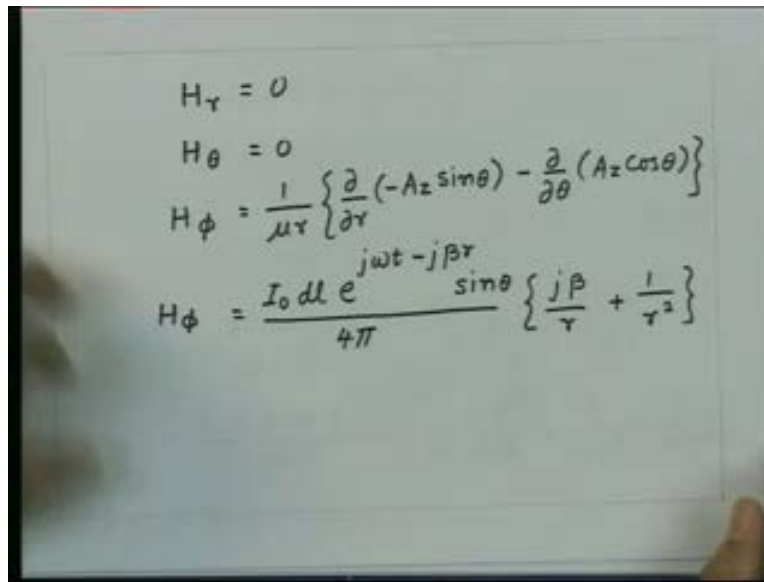 H_r = 0
H_θ = 0
H_ϕ = 1/μr {∂/∂r (-A_z sinθ) - ∂/∂θ (A_z cosθ)}
H_ϕ = I_0 dl e^{jωt - jβr} sinθ / 4π {jβ/r + 1/r^2}